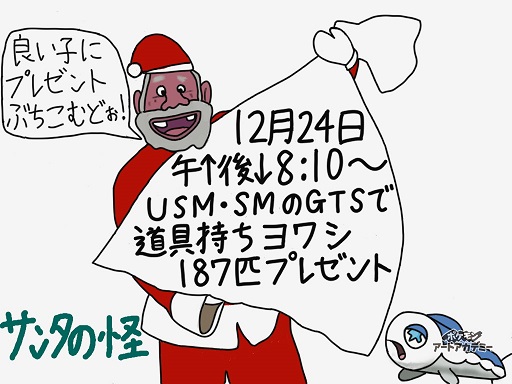 良い子に
プレゼント
ぶちこむどぉ!
12月24日
午↑後↓8:10〜
USM・SMのGTSで
道具持ちヨワシ
187匹プレゼント
サンタの怪
ポケモン
アートアカデミー